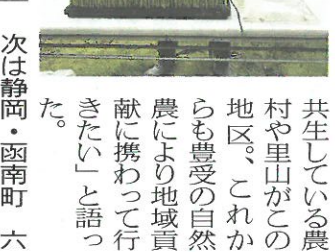 共生している農
村や里山がこの
地区。、これか
らも豊受の自然
農により地域貢
献に携わって行
きたい」と語っ
た。
次は静岡・函南町　六